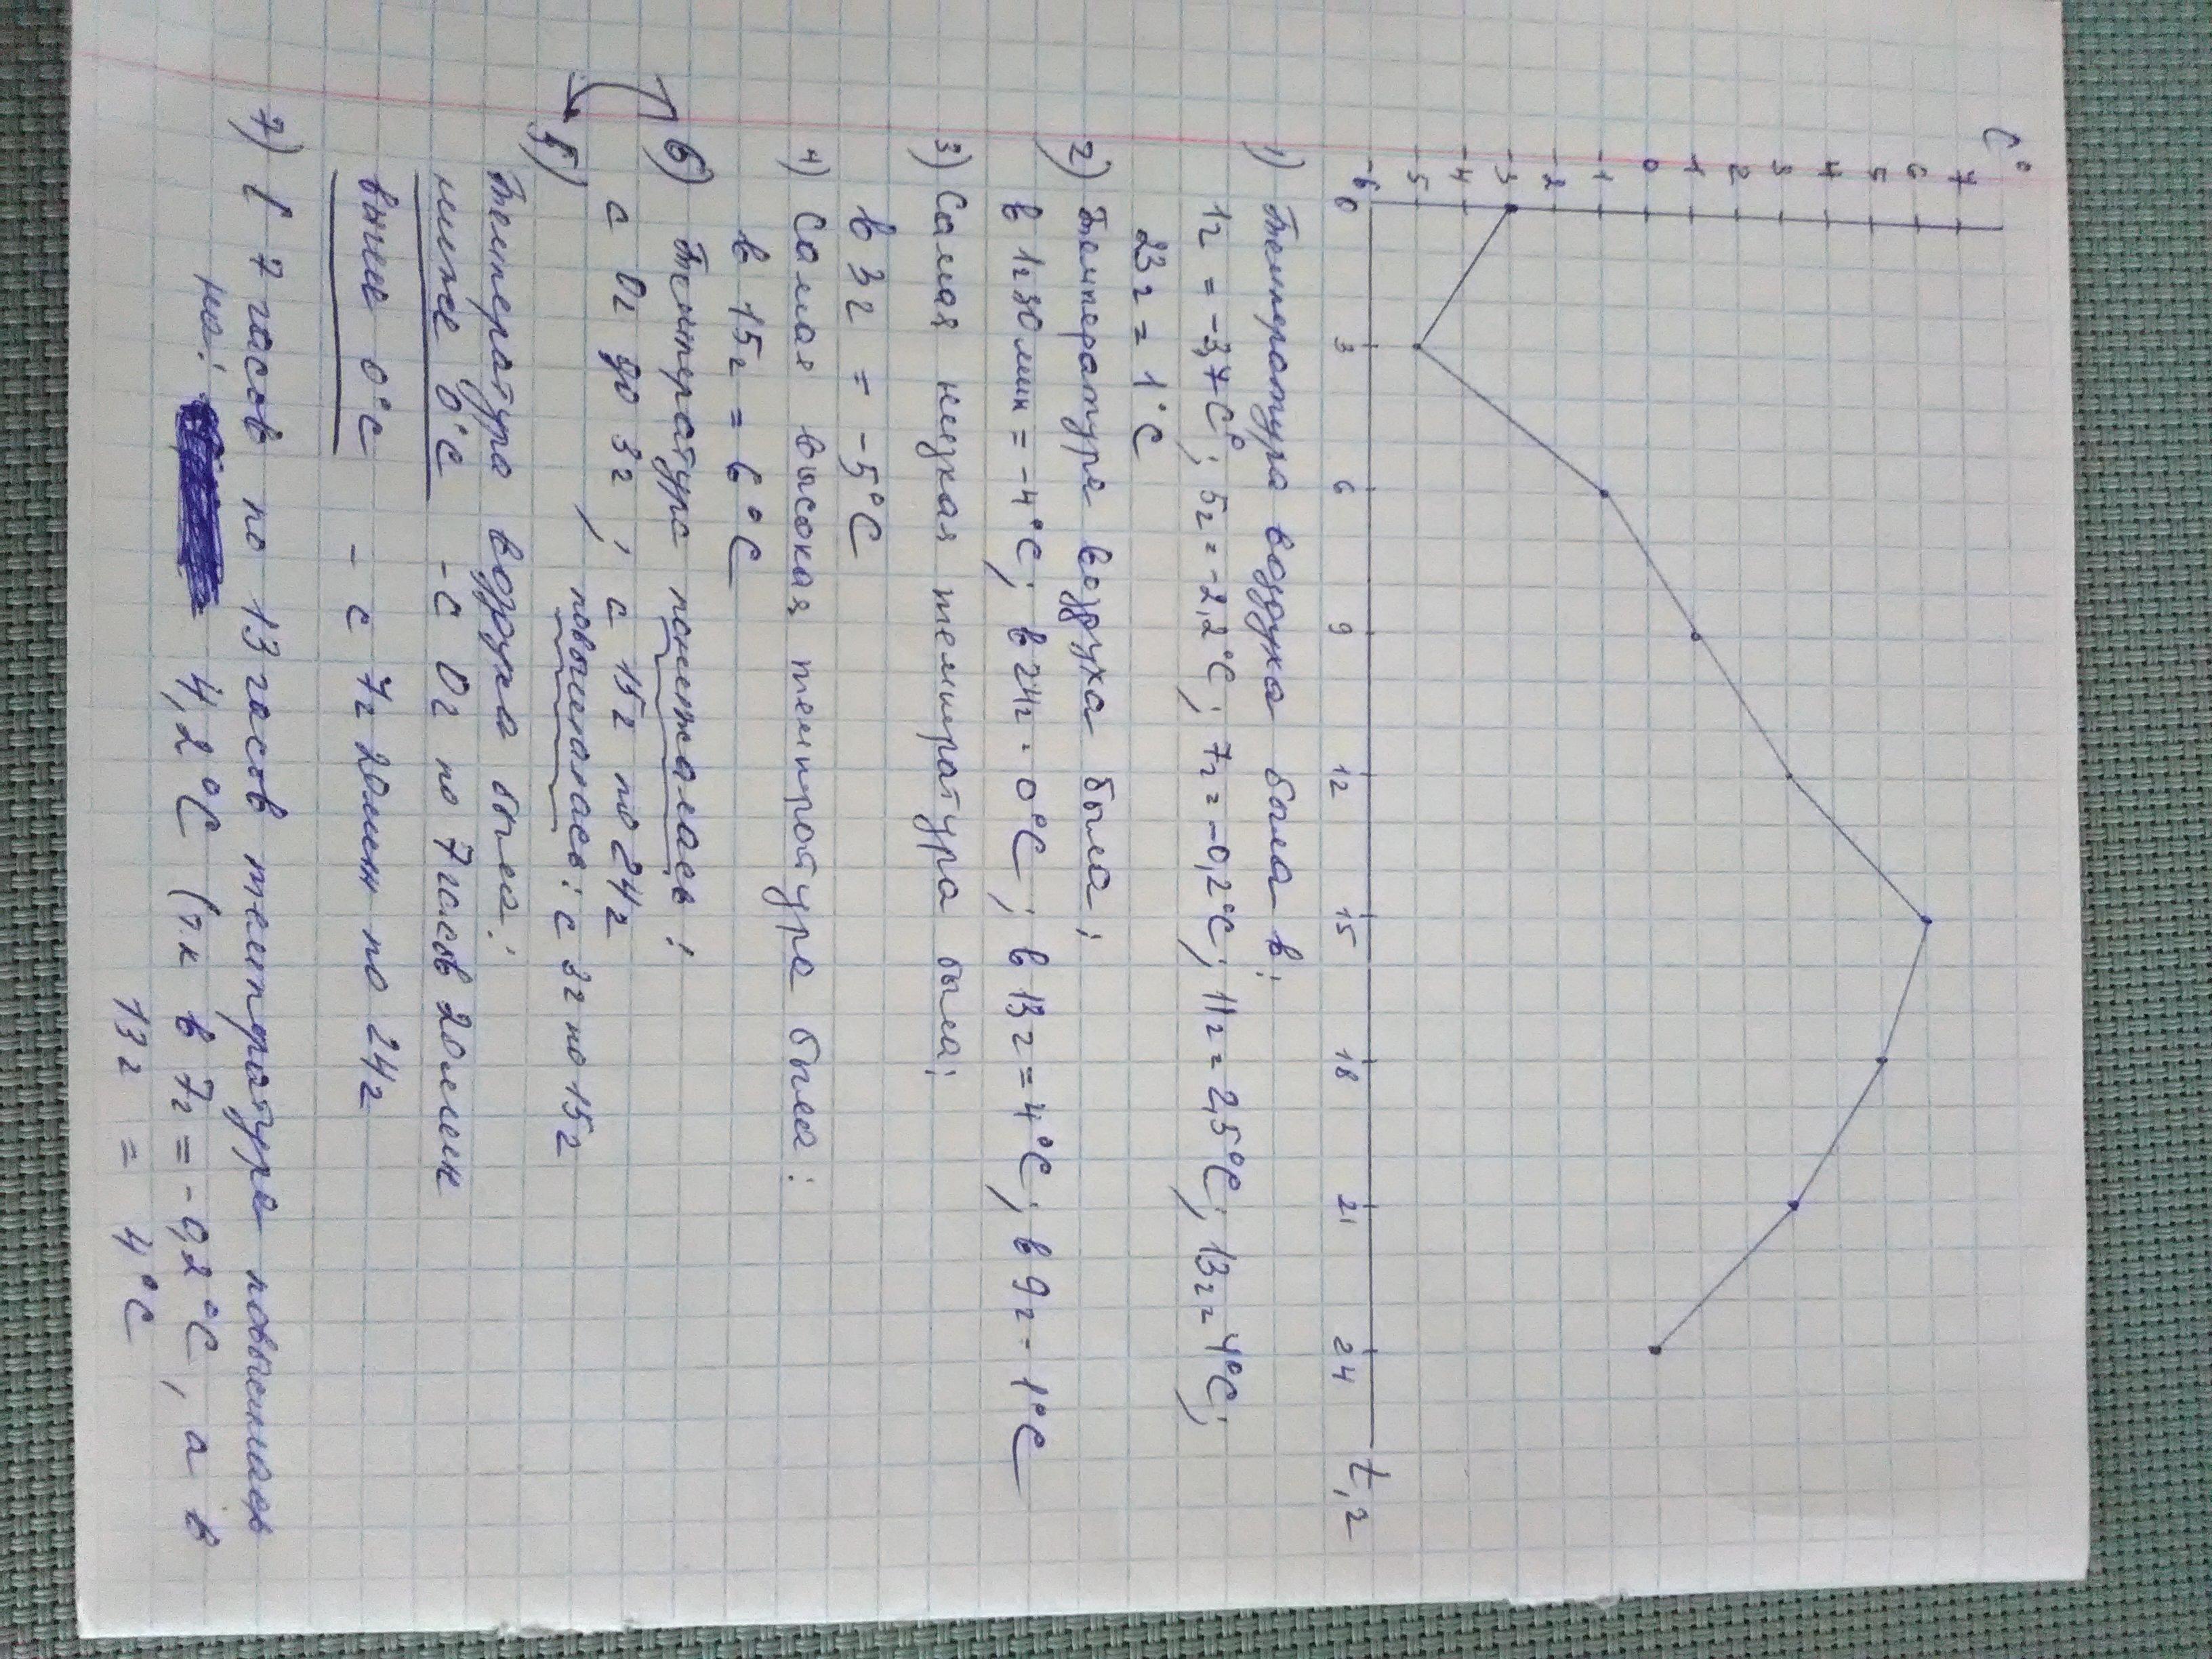 C°
7
6
5
4
3
2
1
0
-1
-2
-3
-4
-5
-6
0 3 6 9 12 15 18 21 24 t,г
1) Температура воздуха была в:
1г = -3,7 C°; 5г = -2,2°C; 7г = -0,2°C; 11г = 2,5°C; 13г = 4°C;
23г = 1°C
2) Температура воздуха была:
в 1г30мин = -4°C; в 24г - 0°C; в 13г = 4°C; в 9г - 1°C
3) Самая низкая температура была:
в 3г = -5°C
4) Самая высокая температура была:
в 15г = 6°C
6) Температура понижалась:
с 0г до 3г ; с 15г по 24г
повышалась: с 3г по 15г
5)
Температура воздуха была:
ниже 0°C - с 0г по 7часов 20мин
выше 0°C - с 7г 20мин по 24г
7) С 7 часов по 13 часов температура повысилась
на: 4,2°C (т.к в 7г = -0,2°C, а в
13г = 4°C